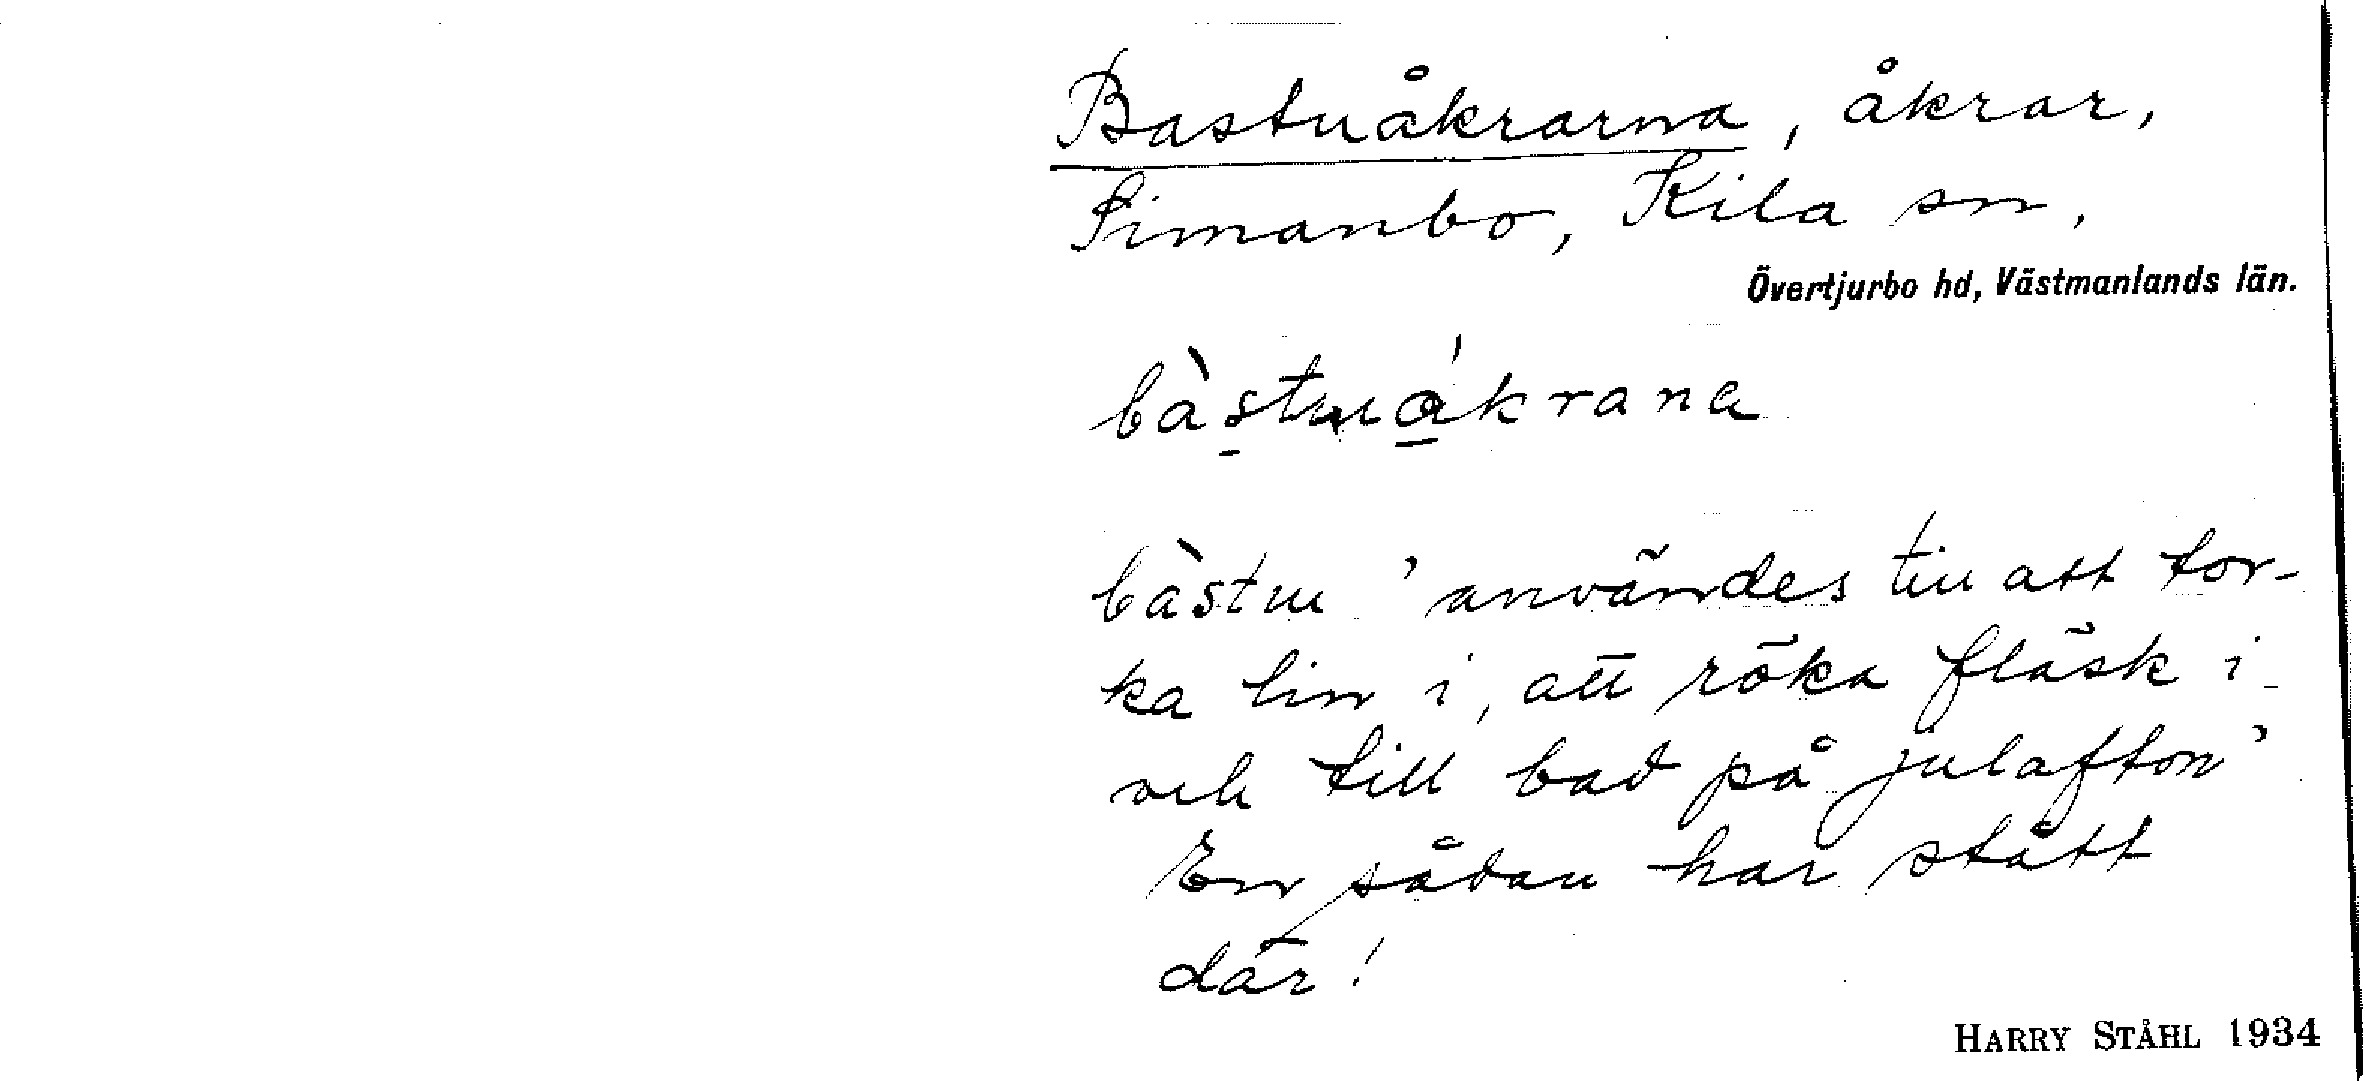 Bastuåkrarna, åkrar,
Simanbo, Kila sn,
Övertjurbo hd, Västmanlands län.
bàstuákrana
bàstu 'användes till att tor-
ka lin i, att röka fläsk i
och till bad på julafton'
En sådan har stått
där!
HARRY STÅHL 1934